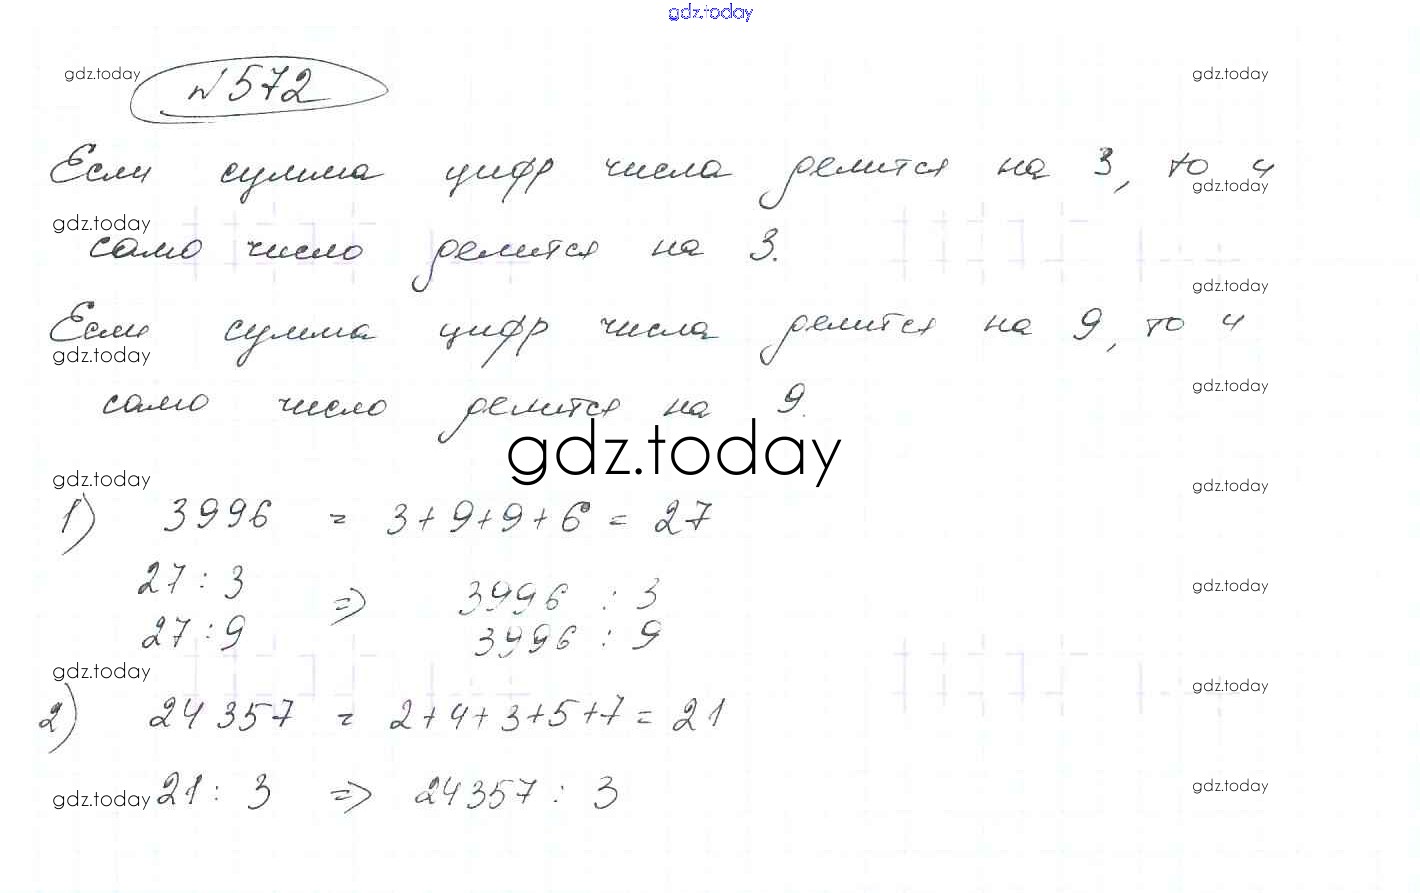 gdz.today
gdz.today
№572
gdz.today
Если сумма цифр числа делится на 3, то и
gdz.today
gdz.today
само число делится на 3.
gdz.today
Если сумма цифр числа делится на 9, то и
gdz.today
gdz.today
само число делится на 9.
gdz.today
gdz.today
gdz.today
1) 3996 = 3+9+9+6 = 27
27 : 3
gdz.today
⇒ 3996 : 3
27 : 9
3996 : 9
gdz.today
gdz.today
2) 24357 = 2+4+3+5+7 = 21
gdz.today
gdz.today 21 : 3 ⇒ 24357 : 3